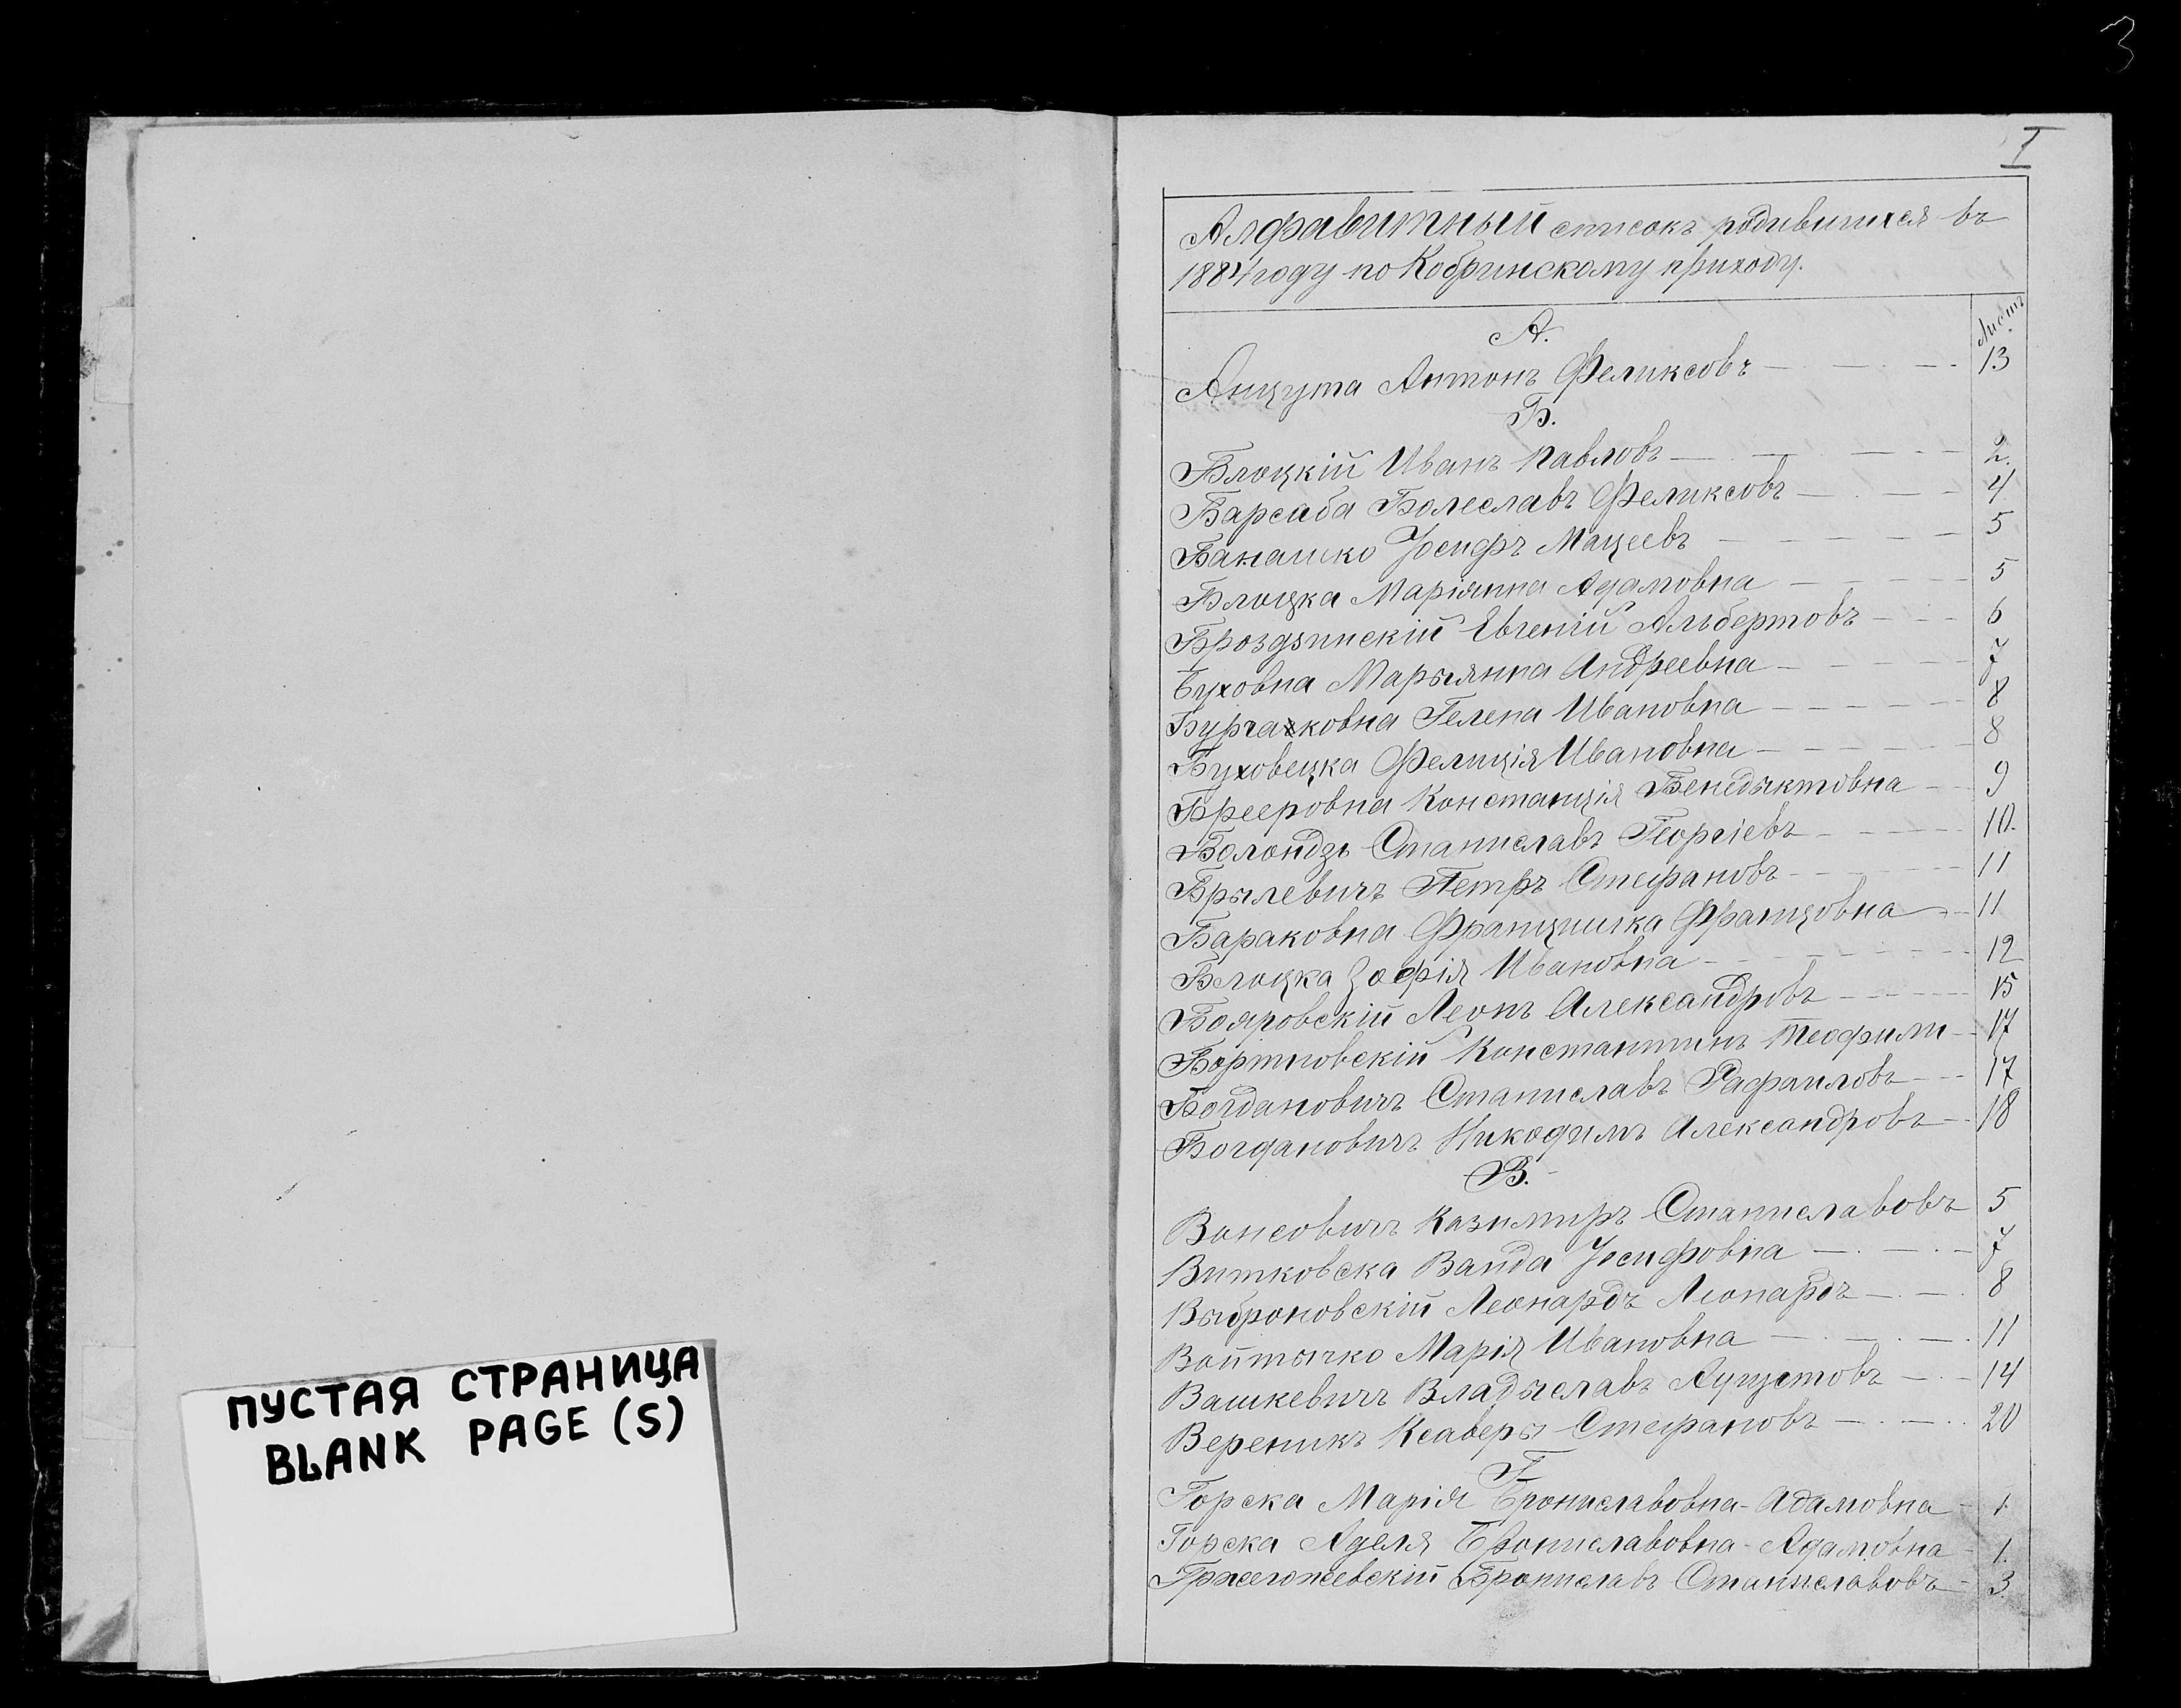 3
I
ПУСТАЯ СТРАНИЦА
BLANK PAGE (S)
Алфавитный списокъ родившихся въ
1884 году по Кобринскому приходу.
Листъ
А.
Анцута Антонъ Феликсовъ 13
Б.
Блоцкій Иванъ Павловъ 2.
Барсаба Болеславъ Феликсовъ 4
Банашко Іосифъ Мацеевъ 5
Блоцка Маріянна Адамовна 5
Броздзинскій Евгеній Альбертовъ 6
Буховна Марыянна Андреевна 7
Бурчаковна Гелена Ивановна 8
Буховецка Фелиція Ивановна 8
Брееровна Констанція Бенедыктовна 9
Болондзь Станиславъ Георгіевъ 10.
Брылевичъ Петръ Стефановъ 11
Бараковна Францишка Францовна 11
Блоцка Зофія Ивановна 12
Бояровскій Леонъ Александровъ 15
Бортновскій Константинъ Теофили 17
Богдановичъ Станиславъ Рафаиловъ 17
Богдановичъ Никодимъ Александровъ 18
В.
Вонсовичъ Казимиръ Станиславовъ 5
Витковска Ванда Іосифовна 7
Выброновскій Леонардъ Леонардъ 8
Войтычко Марія Ивановна 11
Вашкевичъ Владыславъ Аугустовъ 14
Вереникъ Ксаверы Стефановъ 20
Г
Горска Марія Брониславовна-Адамовна 1.
Горска Аделя Брониславовна-Адамовна 1.
Гржегожевскій Брониславъ Станиславовъ 3.